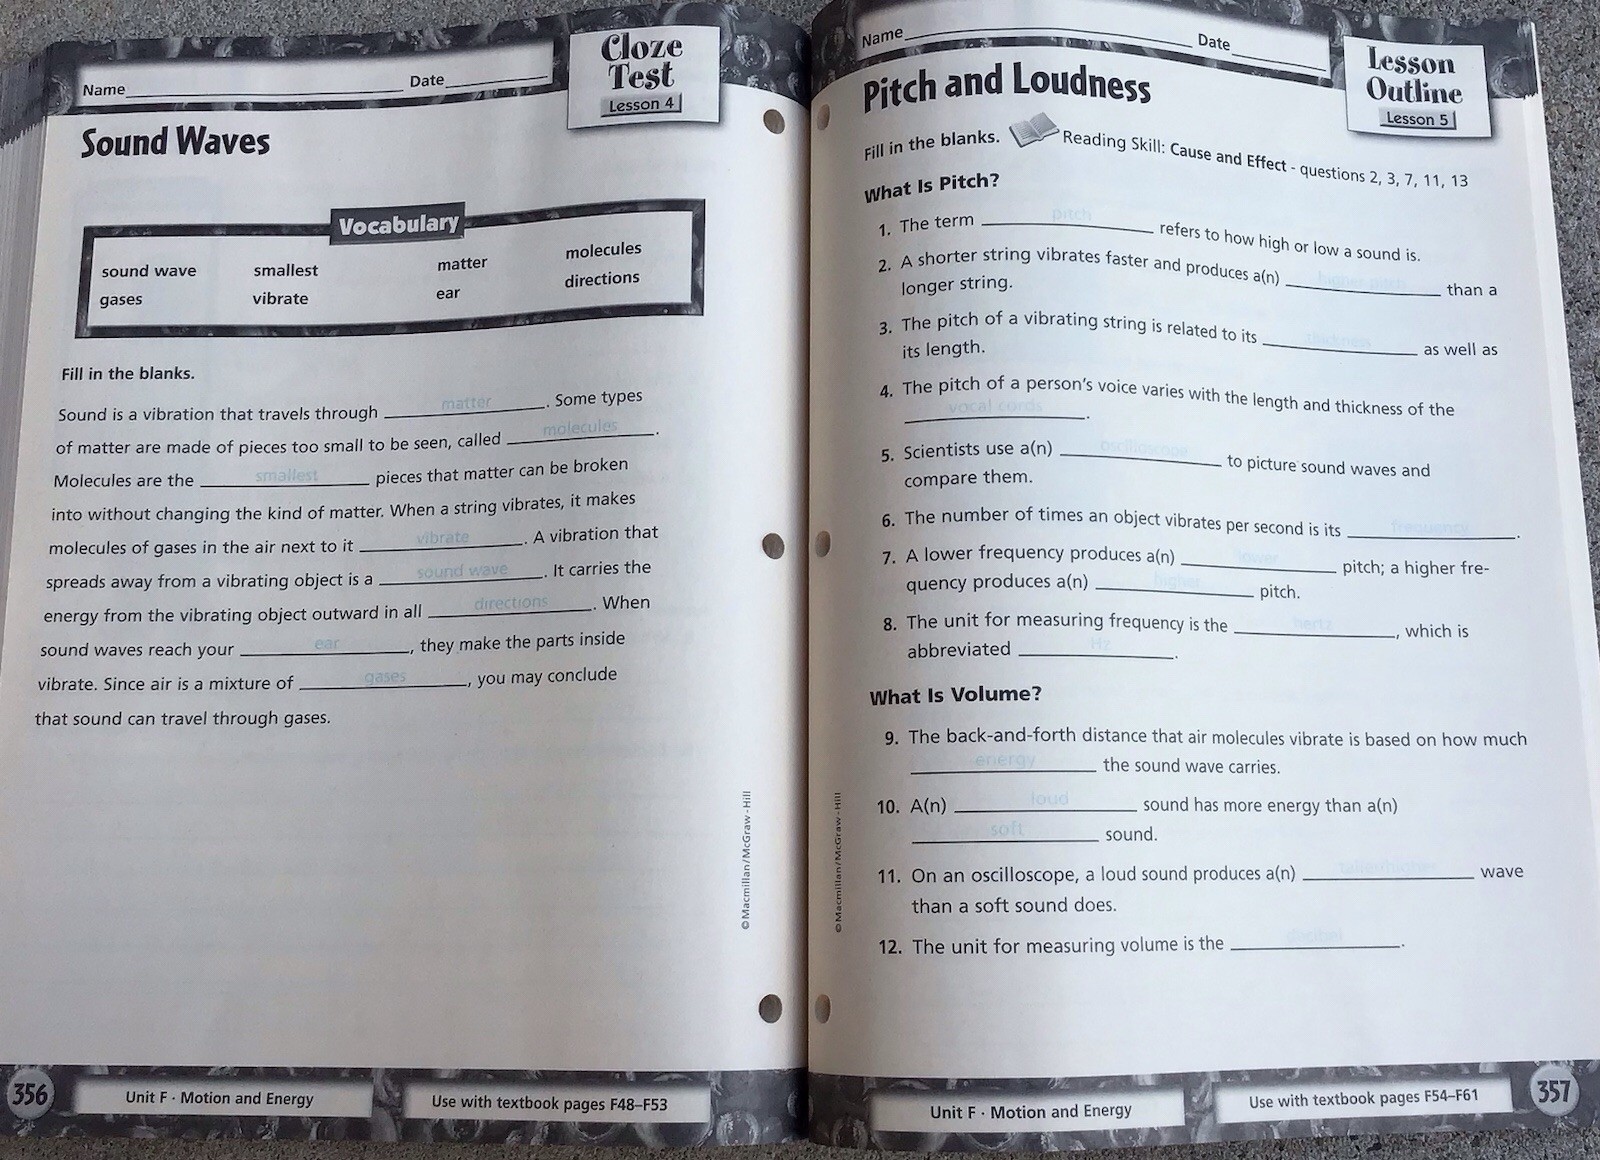 Name Date
Cloze
Test
Lesson 4
Sound Waves
Vocabulary
sound wave smallest matter molecules
gases vibrate ear directions
Fill in the blanks.
Sound is a vibration that travels through matter. Some types
of matter are made of pieces too small to be seen, called molecules.
Molecules are the smallest pieces that matter can be broken
into without changing the kind of matter. When a string vibrates, it makes
molecules of gases in the air next to it vibrate. A vibration that
spreads away from a vibrating object is a sound wave. It carries the
energy from the vibrating object outward in all directions. When
sound waves reach your ear, they make the parts inside
vibrate. Since air is a mixture of gases, you may conclude
that sound can travel through gases.
©Macmillan/McGraw-Hill
356
Unit F · Motion and Energy
Use with textbook pages F48–F53
Name Date
Lesson
Outline
Lesson 5
Pitch and Loudness
Fill in the blanks. Reading Skill: Cause and Effect - questions 2, 3, 7, 11, 13
What Is Pitch?
1. The term pitch refers to how high or low a sound is.
2. A shorter string vibrates faster and produces a(n) higher pitch than a
longer string.
3. The pitch of a vibrating string is related to its thickness as well as
its length.
4. The pitch of a person's voice varies with the length and thickness of the
vocal cords.
5. Scientists use a(n) oscilloscope to picture sound waves and
compare them.
6. The number of times an object vibrates per second is its frequency.
7. A lower frequency produces a(n) lower pitch; a higher fre-
quency produces a(n) higher pitch.
8. The unit for measuring frequency is the hertz, which is
abbreviated Hz.
What Is Volume?
9. The back-and-forth distance that air molecules vibrate is based on how much
energy the sound wave carries.
10. A(n) loud sound has more energy than a(n)
soft sound.
11. On an oscilloscope, a loud sound produces a(n) taller/higher wave
than a soft sound does.
12. The unit for measuring volume is the decibel.
©Macmillan/McGraw-Hill
Unit F · Motion and Energy
Use with textbook pages F54–F61
357